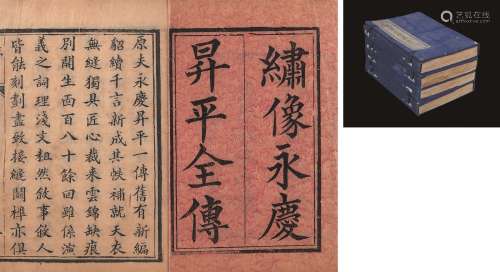 繡像永慶
昇平全傳
原夫永慶昇平一傳舊有新編
貂續千言新成其帙補就天衣
無縫獨具匠心裁来雲錦缺痕
別開生面百八十餘回雖係演
義之詞理淺支粗然敘事叙人
皆能刻劃盡致接縫鬪榫亦俱
艺狐在线